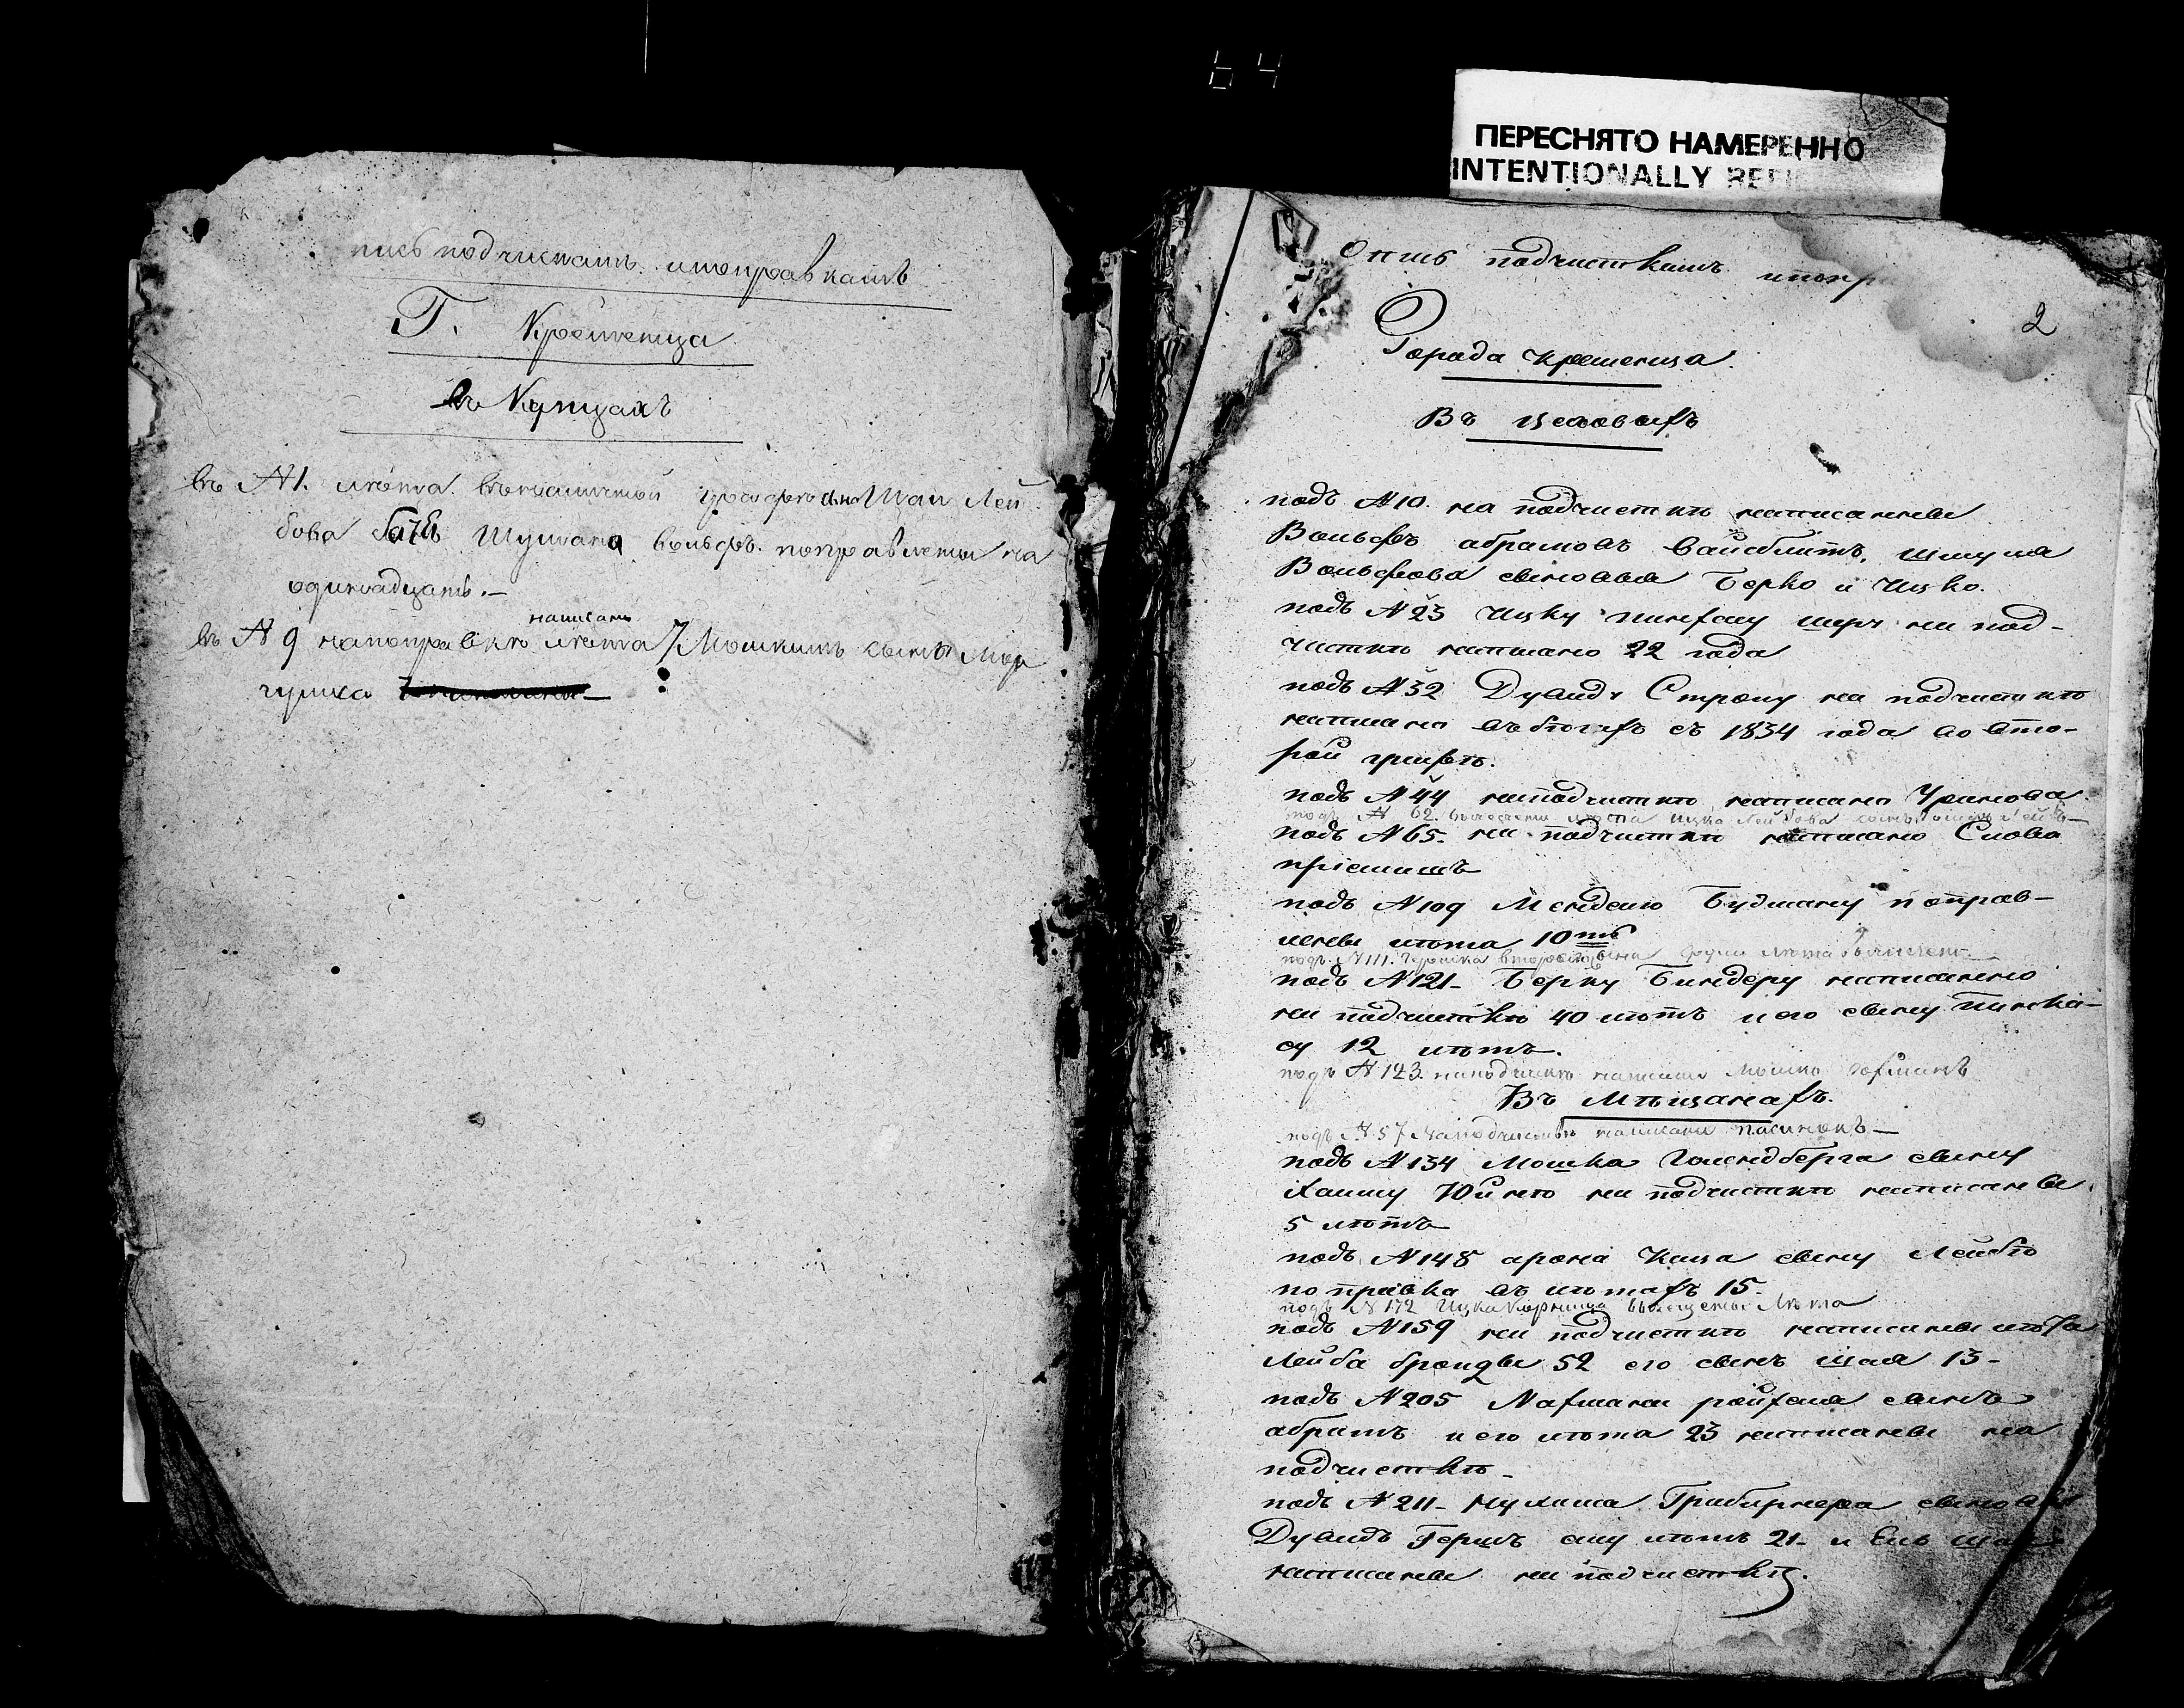 64
ПЕРЕСНЯТО НАМЕРЕННО
INTENTIONALLY REFI
пись подчисткамъ ипоправкамъ
Г. Кременца
въ Купцахъ
въ №1. лѣта Шаи Лей
бова Шулима вольфъ. поправлены на
одинадцать.—
написано
въ № 9 напоправкѣ лѣта 7 Мошкинъ сынъ
Опись подчисткамъ ипопр
2
Города Кременца.
Въ Цеховыхъ
подъ №10. на подчисткѣ написанны
Вольфъ абрамовъ Вайсблитъ, Шмуля
Вольфова сыновья Берко и Ицко.
подъ №23 Ицку на под-
чисткѣ написано 22 года
подъ №32 Дувидъ Строну на подчисткѣ
написано въ бѣгахъ съ 1834 года во вто-
рой графѣ.
подъ №44 наподчисткѣ написано
подъ № 62. лѣта Ицка Лейбова
подъ №65. на подчисткѣ написано Слова
пріемышъ
подъ №109 Менделю Будману поправ-
лены лѣта 10ть
подъ №111. Гершка втораго сына лѣта
подъ №121- Берку Биндеру написанно
на подчисткѣ 40 лѣтъ и его сыну Пинка-
су 12 лѣтъ.
подъ №123. наподчисткѣ написанъ Мошко
Въ Мѣщанахъ.
подъ №57 Наподчисткѣ написано пасынокъ—
подъ №134 Мошка Голендберга сыну
Хаиму Юйнѣ на подчисткѣ написанны
5 лѣтъ
подъ №148 арона Каца сыну Лейбѣ
поправка въ лѣтахъ 15.
подъ №172 Ицка лѣта
подъ №159 на подчисткѣ написаны лѣта
Лейба бронды 52 его сынъ Шая 13-
подъ №205 Нахмана сынъ
абрамъ и его лѣта 23 написаны на
подчисткѣ-
подъ №211- сыновья
Дувидъ Гершъ ему лѣтъ 21- и Ель
написаны на подчисткѣ.